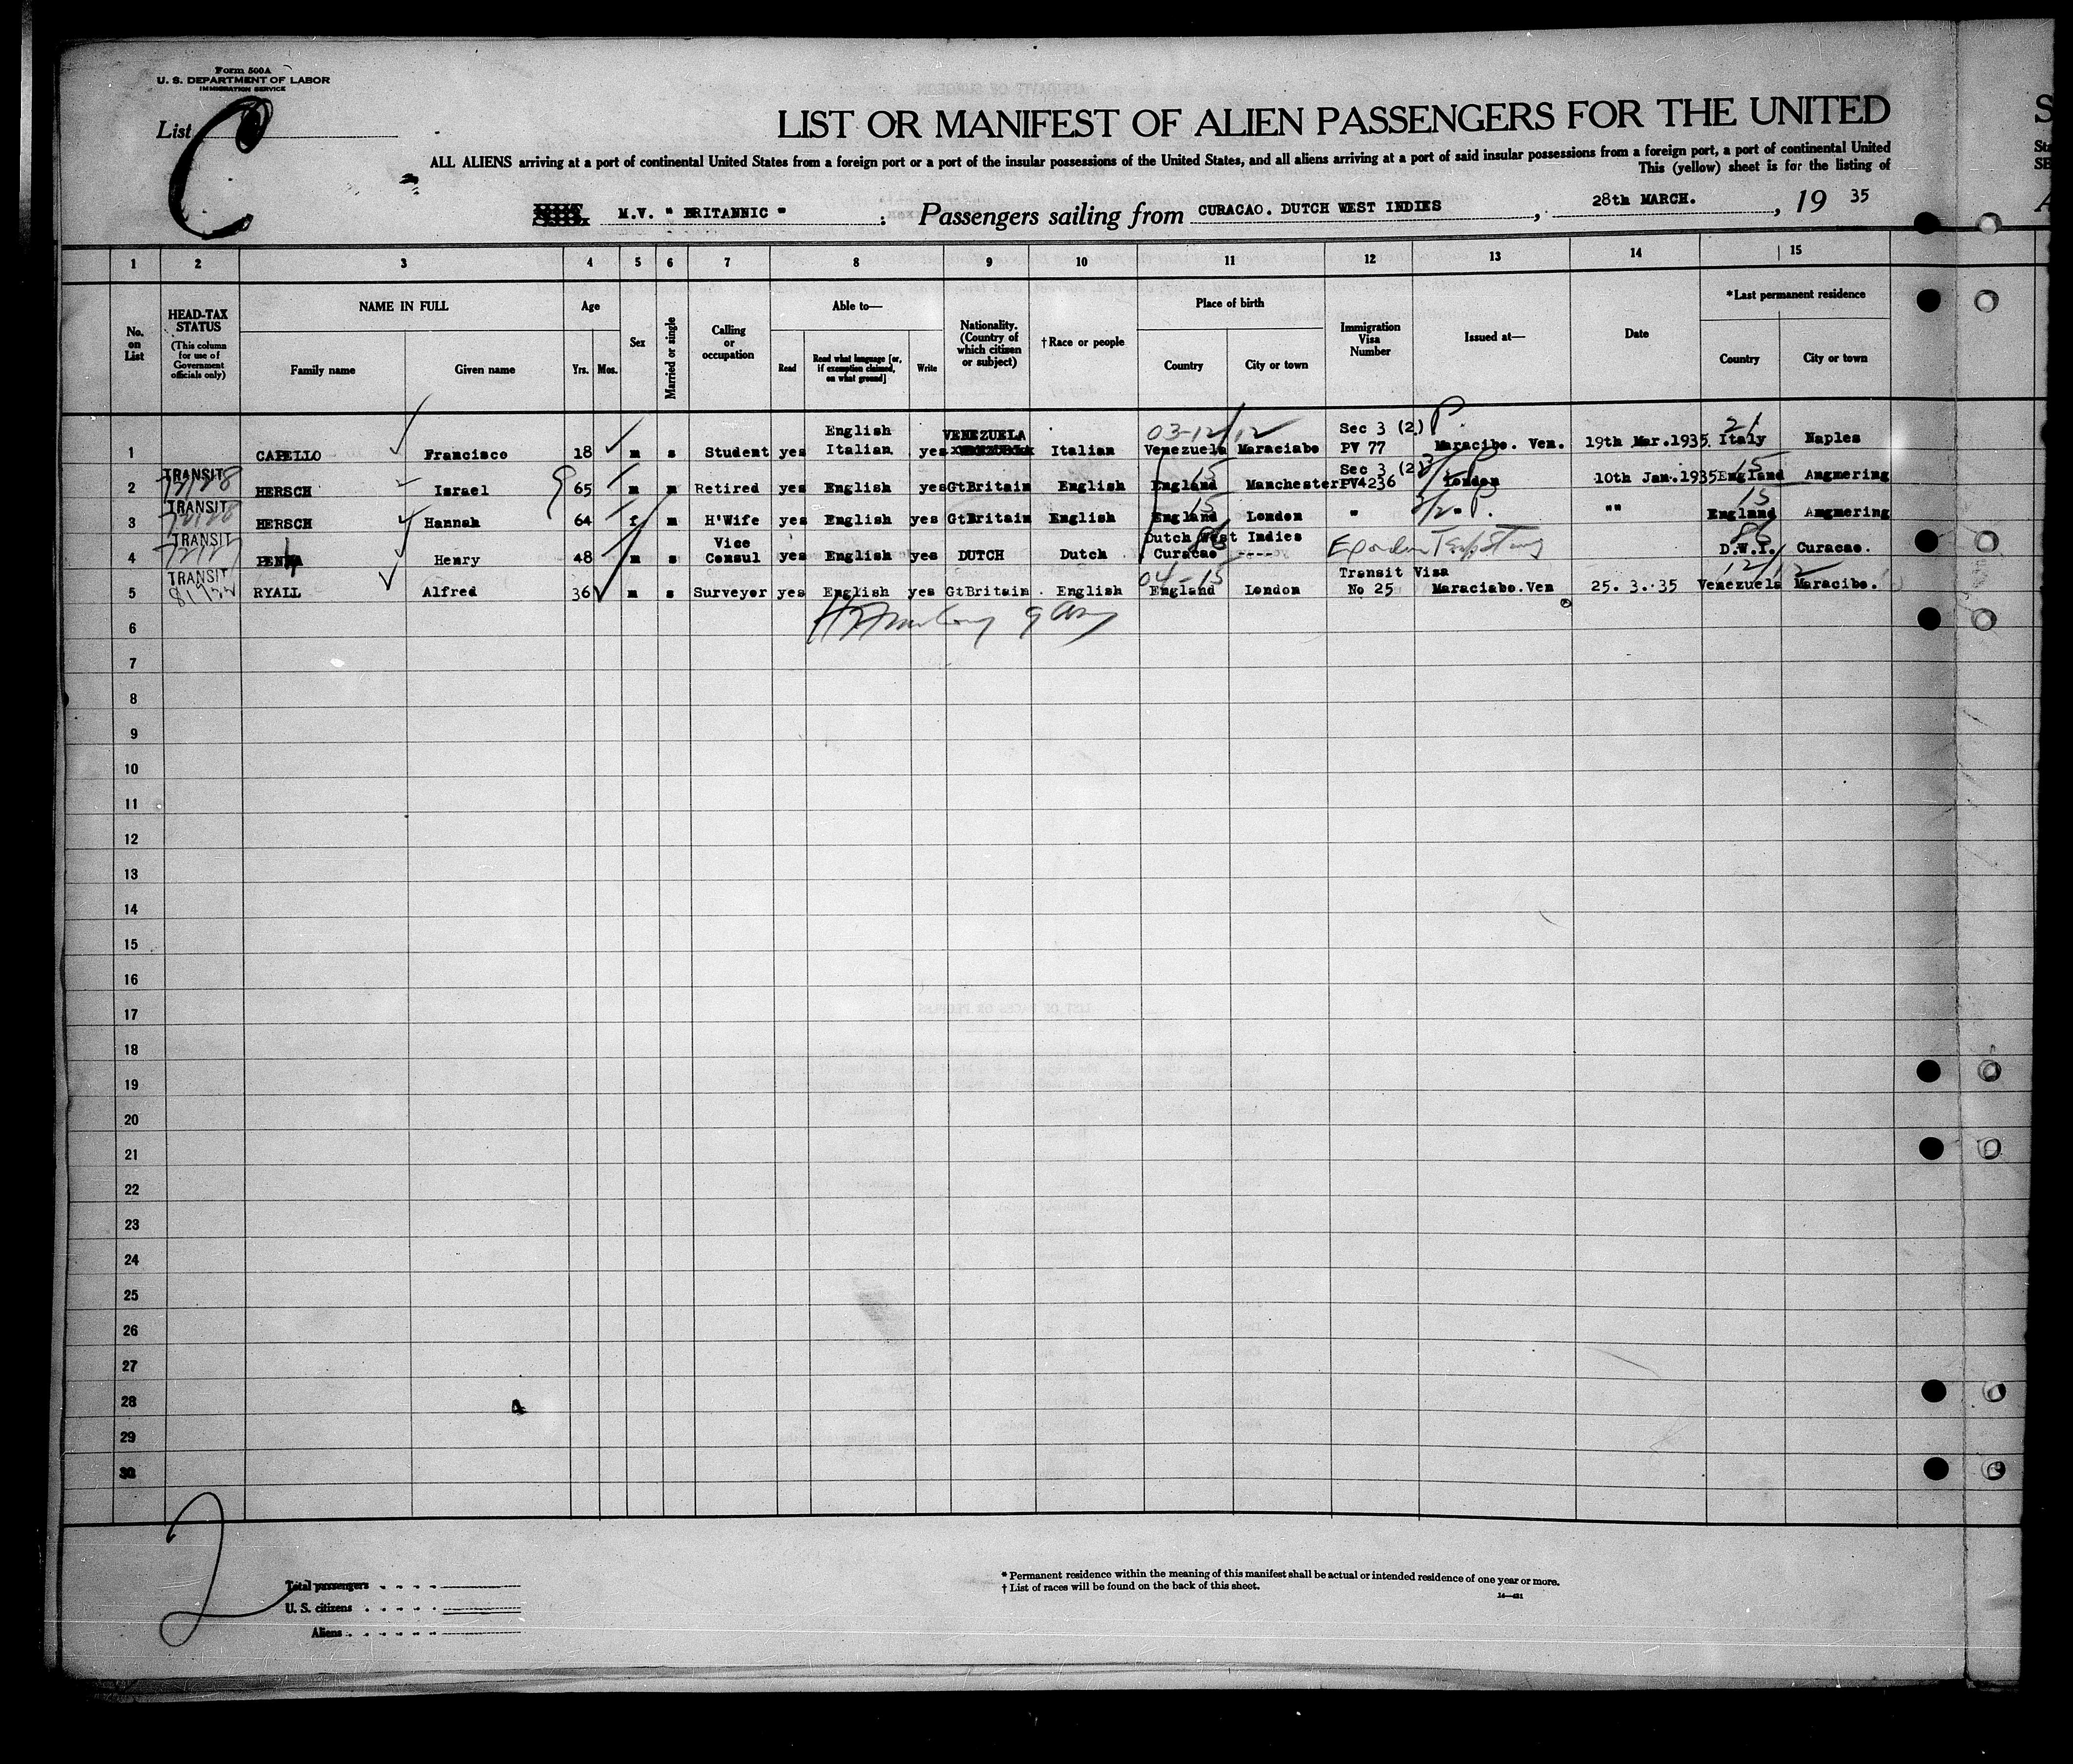 Form 500A
U. S. DEPARTMENT OF LABOR
IMMIGRATION SERVICE
List C
LIST OR MANIFEST OF ALIEN PASSENGERS FOR THE UNITED
ALL ALIENS arriving at a port of continental United States from a foreign port or a port of the insular possessions of the United States, and all aliens arriving at a port of said insular possessions from a foreign port, a port of continental United
This (yellow) sheet is for the listing of
M.V. " BRITANNIC " Passengers sailing from CURACAO. DUTCH WEST INDIES, 28th MARCH., 19 35
1 2 3 4 5 6 7 8 9 10 11 12 13 14 15
No. on List
HEAD-TAX STATUS (This column for use of Government officials only)
NAME IN FULL
Family name Given name
Age
Yrs. Mos.
Sex
Married or single
Calling or occupation
Able to—
Read Read what language [or, if exemption claimed, on what ground] Write
Nationality. (Country of which citizen or subject)
†Race or people
Place of birth
Country City or town
Immigration Visa Number
Issued at—
Date
*Last permanent residence
Country City or town
English VENEZUELA 03-12/12 Sec 3 (2) P 21
1 CAPELLO Francisco 18 m s Student yes Italian yes Italian Venezuela Maraciabo PV 77 Maracibo. Ven. 19th Mar.1935. Italy Naples
TRANSIT 15 Sec 3 (2) P 15
2 HERSCH Israel 65 m m Retired yes English yes GtBritain English England Manchester PV4236 London 10th Jan.1935 England Angmering
TRANSIT 15 15
3 HERSCH Hannah 64 f m H'Wife yes English yes GtBritain English England London " P. "" England Angmering
TRANSIT Vice Dutch West Indies 86 86
4 PENHA Henry 48 m s Consul yes English yes DUTCH Dutch Curacao ---- D.W.I. Curacao.
TRANSIT 04-15 Transit Visa 12/12
5 RYALL Alfred 36 m s Surveyor yes English yes GtBritain English England London No 25 Maraciabo.Ven 25. 3. 35 Venezuela Maracibo.
6
7
8
9
10
11
12
13
14
15
16
17
18
19
20
21
22
23
24
25
26
27
28
29
30
4
2
Total passengers
U. S. citizens
Aliens
* Permanent residence within the meaning of this manifest shall be actual or intended residence of one year or more.
† List of races will be found on the back of this sheet.